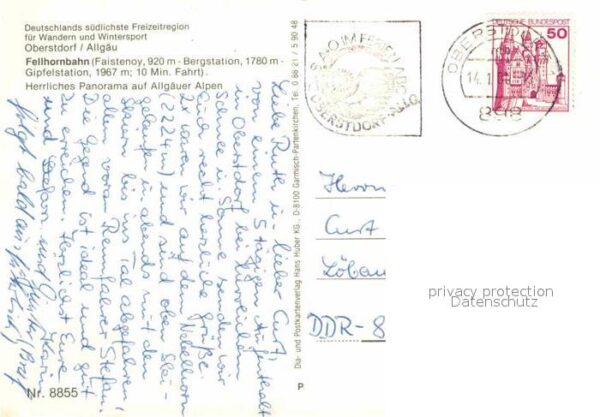 Deutschlands südlichste Freizeitregion
für Wandern und Wintersport
Oberstdorf / Allgäu
Fellhornbahn (Faistenoy, 920 m - Bergstation, 1780 m -
Gipfelstation, 1967 m; 10 Min. Fahrt).
Herrliches Panorama auf Allgäuer Alpen
Liebe Ruth u. lieber Curt,
von einem 8tägigen Aufenthalt
in Oberstdorf bei
Schnee u. Sonne senden wir
Euch recht herzliche Grüße.
2x waren wir auf dem Nebelhorn
(2224m) und sind oben Ski-
gelaufen u. abends mit den
Skiern bis ins Tal abgefahren,
allen voran Rennfahrer Stefan.
Die Gegend ist ideal und gut
zu erreichen. Herzlichst Eure
und Stefan und Karin
folgt bald ein Brief
Nr. 8855
Dia- und Postkartenverlag Hans Huber KG., D-8100 Garmisch-Partenkirchen, Tel. 0 88 21 / 5 90 48
P
OBERSTDORF
14.1
898
DEUTSCHE BUNDESPOST
50
Herrn
Curt
Löbau
DDR-8
privacy protection
Datenschutz